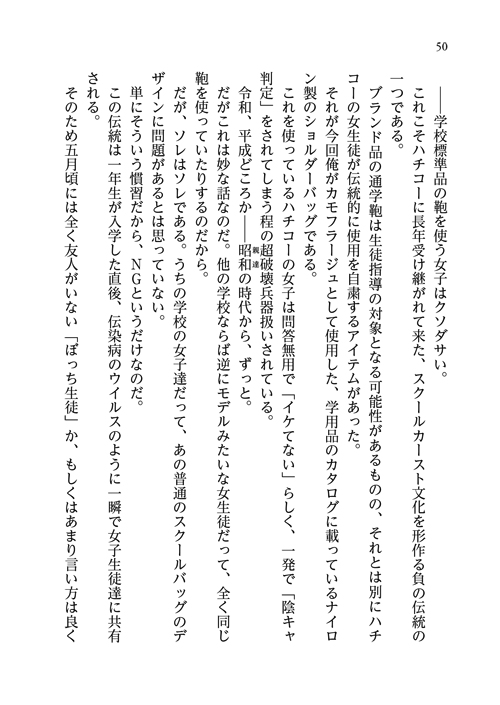 50
――学校標準品の鞄を使う女子はクソダサい。
これこそハチコーに長年受け継がれて来た、スクールカースト文化を形作る負の伝統の
一つである。
ブランド品の通学鞄は生徒指導の対象となる可能性があるものの、それとは別にハチ
コーの女生徒が伝統的に使用を自粛するアイテムがあった。
それが今回俺がカモフラージュとして使用した、学用品のカタログに載っているナイロ
ン製のショルダーバッグである。
これを使っているハチコーの女子は問答無用で「イケてない」らしく、一発で「陰キャ
判定」をされてしまう程の超破壊兵器扱いされている。
令和、平成どころか――昭和の時代から、ずっと。
親達
だがこれは妙な話なのだ。他の学校ならば逆にモデルみたいな女生徒だって、全く同じ
鞄を使っていたりするのだから。
だが、ソレはソレである。うちの学校の女子達だって、あの普通のスクールバッグのデ
ザインに問題があるとは思っていない。
単にそういう慣習だから、ＮＧというだけなのだ。
この伝統は一年生が入学した直後、伝染病のウイルスのように一瞬で女子生徒達に共有
される。
そのため五月頃には全く友人がいない「ぼっち生徒」か、もしくはあまり言い方は良く